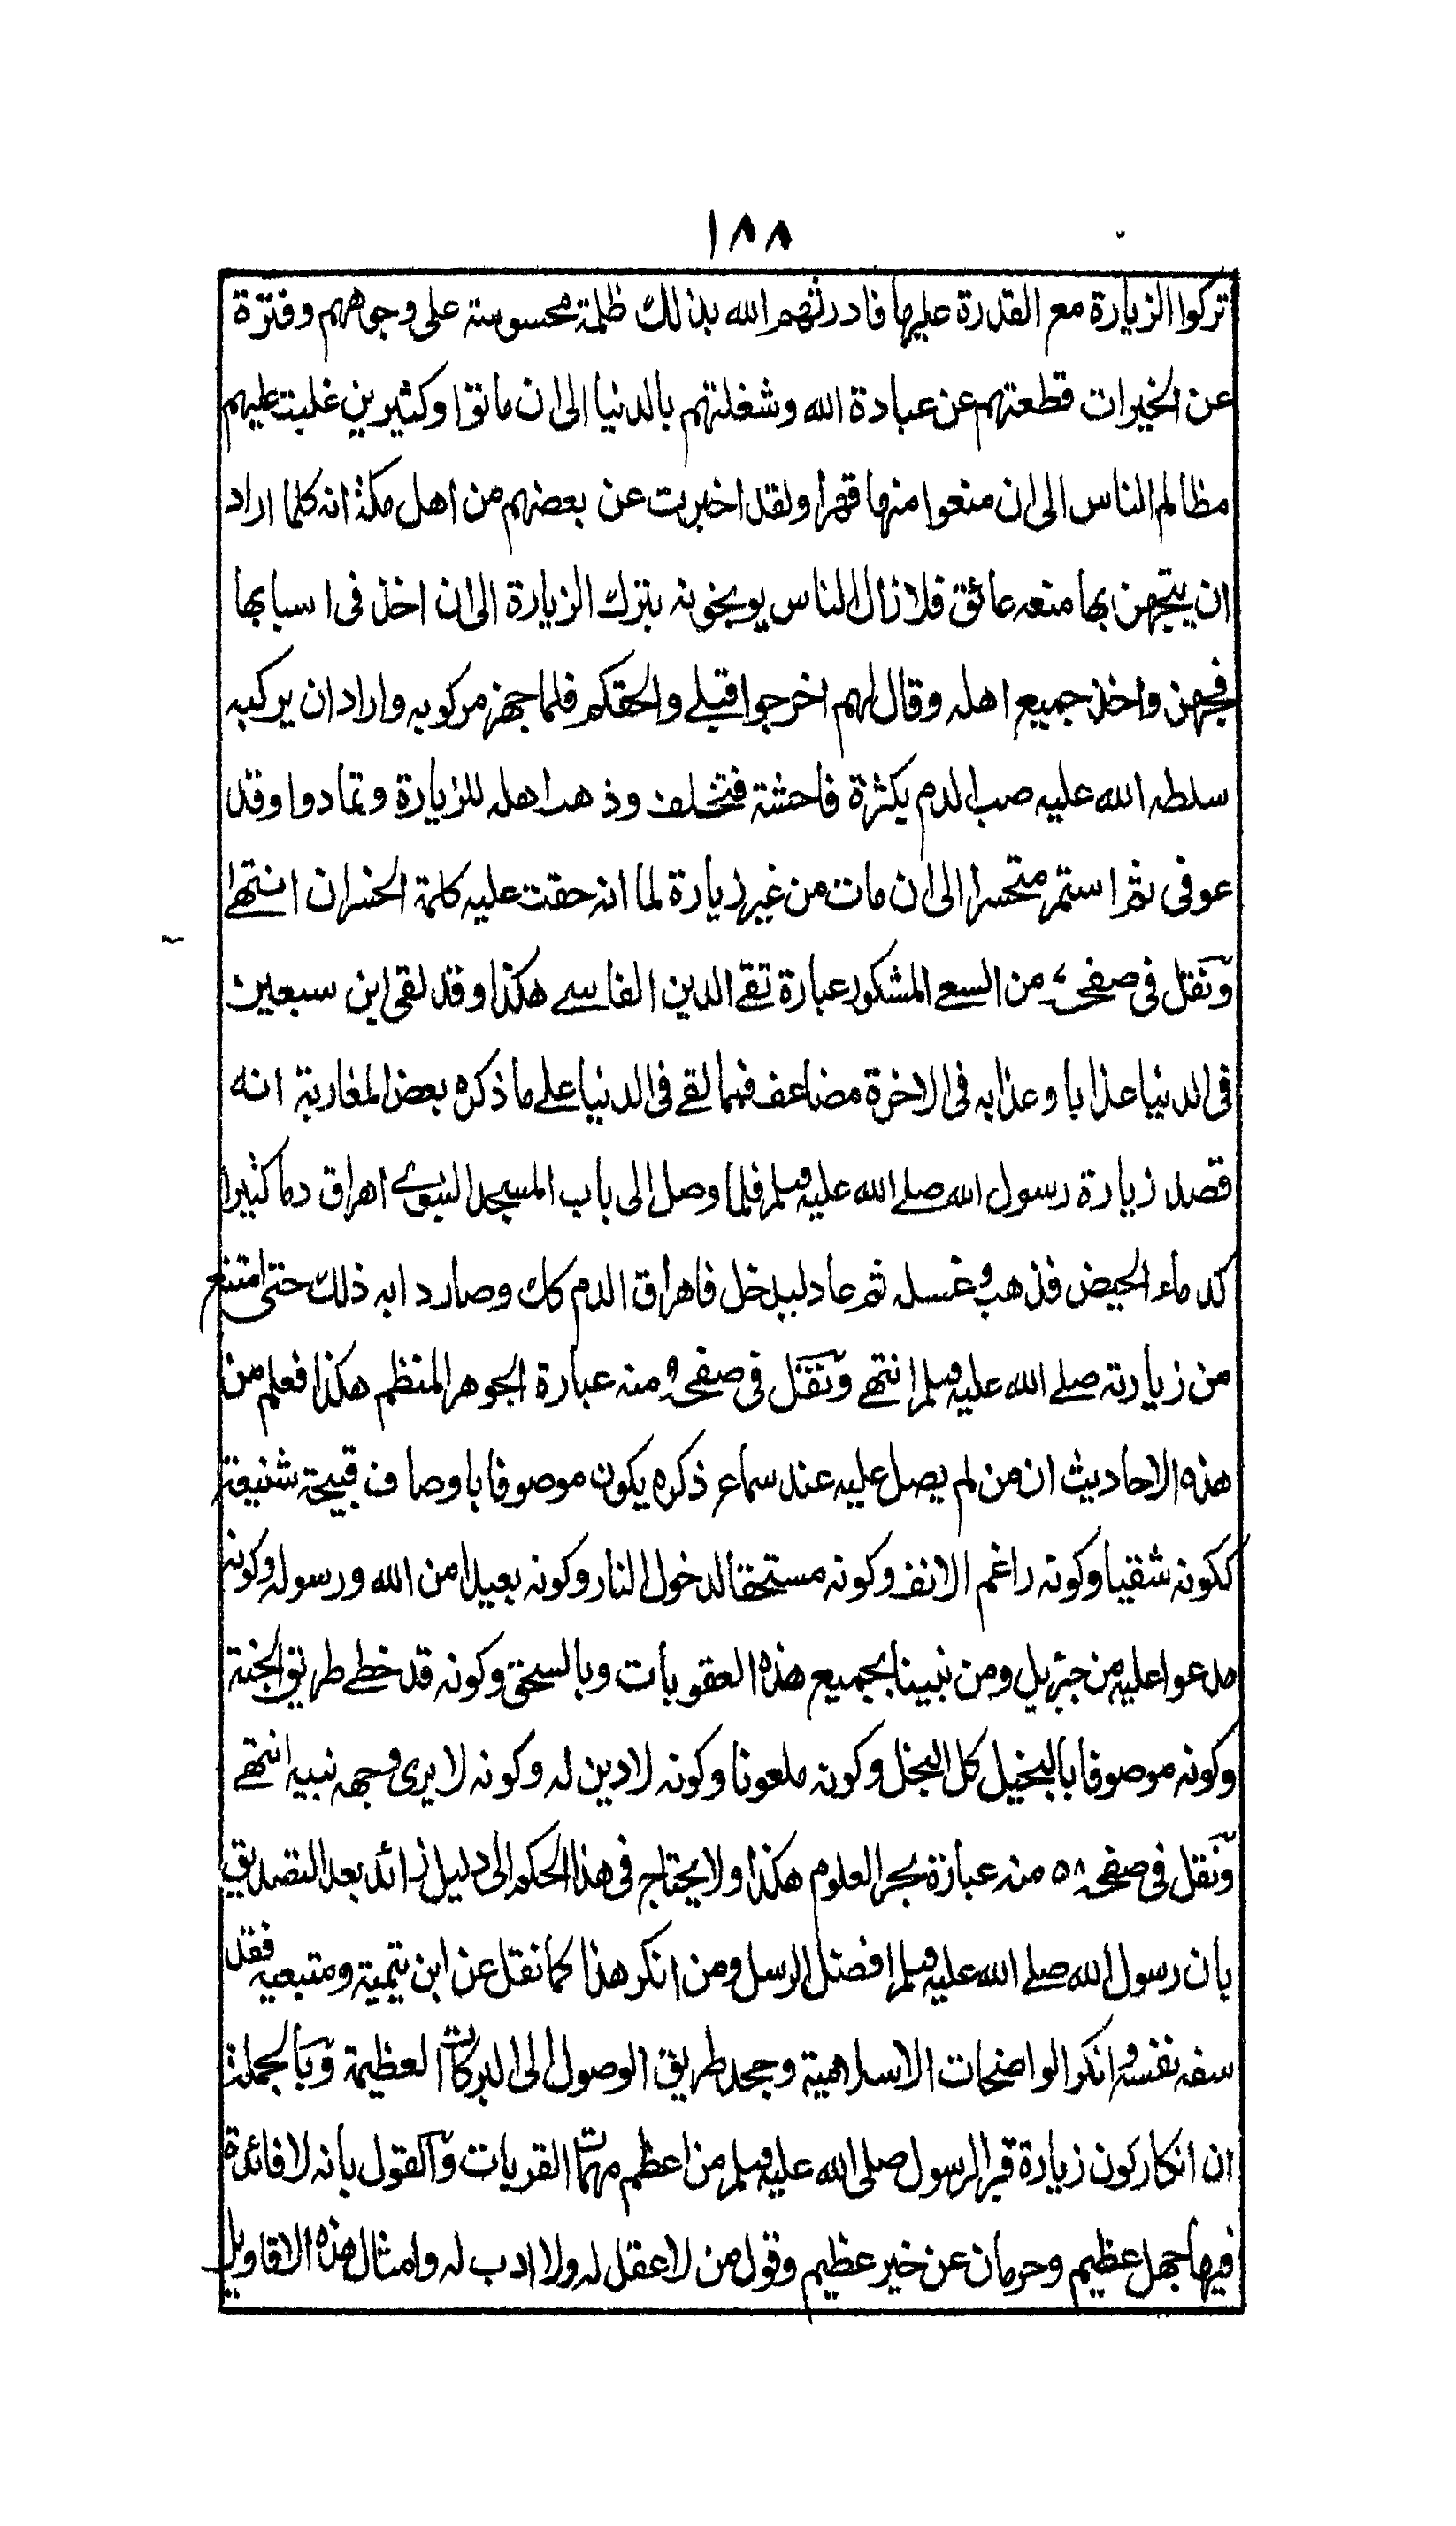 ١٨٨
تركوا الزيارة مع القدرة عليها فاورثهم الله بذلك ظلمة محسوسة على وجوههم وفترة
عن الخيرات قطعتهم عن عبادة الله وشغلتهم بالدنيا الى ان ماتوا وكثيرين غلبت عليهم
مظالم الناس الى ان منعوا منها قهرا ولقد اخبرت عن بعضهم من اهل مكة انه كلما اراد
ان يتجهز بها منعه عائق فلا زال الناس يوبخونه بترك الزيارة الى ان اخذ فى اسبابها
فجهز واخذ جميع اهله وقال لهم اخرجوا قبلے والحقكم فلما جهز مركوبه واراد ان يركبه
سلطه الله عليه صب الدم بكثرة فاحشة فتخلف وذهب اهله للزيارة وتمادوا وقد
عوفى ثم استمر متحسرا الى ان مات من غير زيارة لما انه حقت عليه كلمة الخسران انتهے
ونقل فى صفحه ٧ من السعے المشكور عبارة تقے الدين الفاسے هكذا وقد لقى ابن سبعين
فى الدنيا عذابا وعذابه فى الاخرة مضاعف فمما لقے فى الدنيا علے ما ذكره بعض المغاربة انه
قصد زيارة رسول الله صلے الله عليه وسلم فلما وصل الى باب المسجد النبوے اهراق دما كثيرا
كدماء الحيض فذهب وغسله ثم عاد ليدخل فاهراق الدم كك وصار دابه ذلك حتى امتنع
من زيارته صلے الله عليه وسلم انتهے ونقل فى صفحه ٩ منه عبارة الجوهر المنظم هكذا فعلم من
هذه الاحاديث ان من لم يصل عليه عند سماع ذكره يكون موصوفا باوصاف قبيحة شنيعة
ككونه شقيا وكونه راغم الانف وكونه مستحقا لدخول النار وكونه بعيدا من الله ورسوله وكونه
مدعوا عليه من جبرئيل ومن نبينا بجميع هذه العقوبات وبالسحق وكونه قد خطے طريق الجنة
وكونه موصوفا بالبخيل كل البخل وكونه ملعونا وكونه لا دين له وكونه لا يرى وجه نبيه انتهے
ونقل فى صفحه ٥٨ منه عبارة بحر العلوم هكذا ولا يحتاج فى هذا الحكم الى دليل زائد بعد التصديق
بان رسول الله صلے الله عليه وسلم افضل الرسل ومن انكر هذا كما نقل عن ابن تيمية ومتبعيه فقد
سفه نفسه وانكر الواضحات الاسلامية وجحد طريق الوصول الى البركات العظيمة وبالجملة
ان انكار كون زيارة قبر الرسول صلى الله عليه وسلم من اعظم مهمات القربات والقول بانه لا فائدة
فيها جهل عظيم وحرمان عن خير عظيم وقول من لا عقل له ولا ادب له وامثال هذه الاقاويل